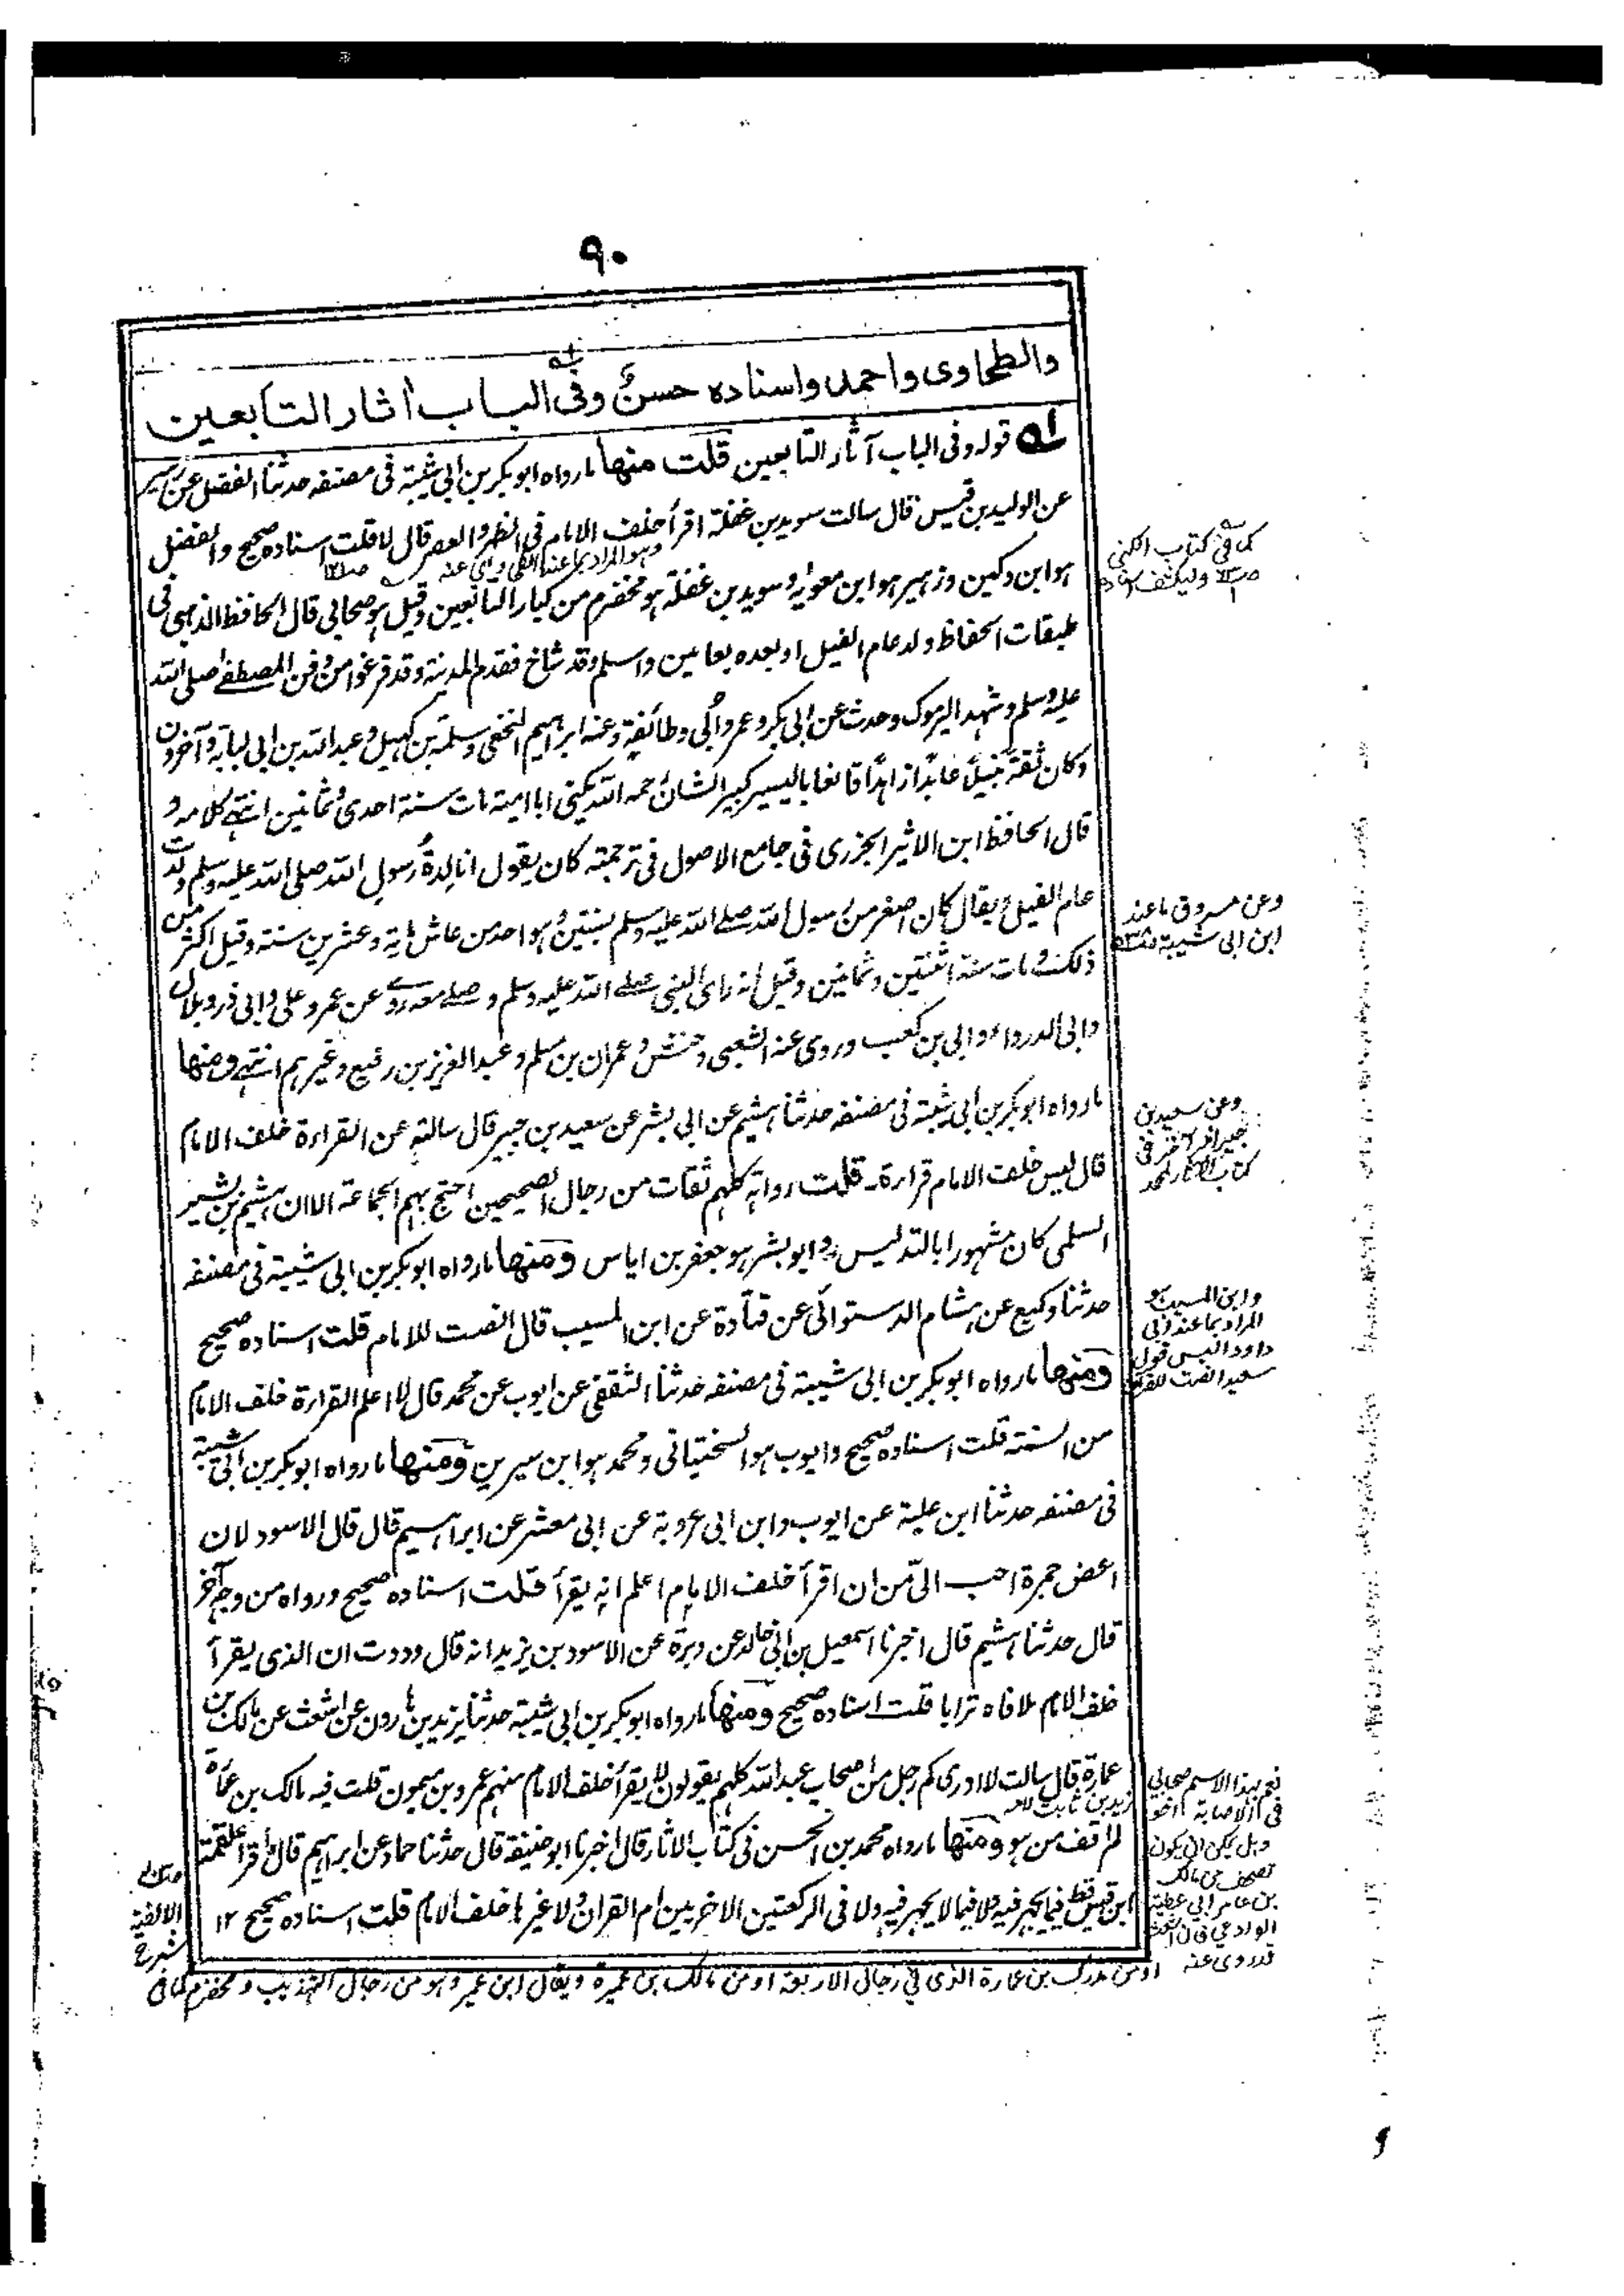 ٩٠
والطحاوى واحمد واسناده حسن وفى الباب اثار التابعين
قوله وفى الباب آثار التابعين قلت منها ما رواه ابو بكر بن ابى شيبة فى مصنفه حدثنا الفضل عن زهير
عن الوليد بن قيس قال سالت سويد بن غفلة اقرأ خلف الامام فى الظهر والعصر قال لا قلت اسناده صحيح والفضل
هو ابن دكين وزهير هو ابن معوية وسويد بن غفلة هو مخضرم من كبار التابعين وقيل هو صحابى قال الحافظ الذهبى فى
طبقات الحفاظ ولد عام الفيل او بعده بعامين واسلم وقد شاخ فقدم المدينة وقد فرغوا من دفن المصطفى صلى الله
عليه وسلم وشهد اليرموك وحدث عن ابى بكر وعمر وابى وطائفة وعنه ابراهيم النخعى وسلمة بن كهيل وعبد الله بن ابى لبابة وآخرون
وكان ثقة نبيلا عابدا زاهدا قانعا باليسير كبير الشان رحمه الله يكنى ابا امية مات سنة احدى وثمانين انتهى كلامه و
قال الحافظ ابن الاثير الجزرى فى جامع الاصول فى ترجمته كان يقول انا لدة رسول الله صلى الله عليه وسلم ولدت
عام الفيل ويقال كان اصغر من رسول الله صلى الله عليه وسلم بسنتين وهو احد من عاش مأية وعشرين سنة وقيل اكثر من
ذلك ومات سنة اثنتين وثمانين وقيل انه راى النبى صلى الله عليه وسلم وصلى معه روى عن عمر وعلى وابى ذر وبلال
وابى الدرداء وابى بن كعب وروى عنه الشعبى وخنش وعمران بن مسلم وعبد العزيز بن رفيع وغيرهم انتهى ومنها
ما رواه ابو بكر بن ابى شيبة فى مصنفه حدثنا هشيم عن ابى بشر عن سعيد بن جبير قال سالته عن القراءة خلف الامام
قال ليس خلف الامام قراءة۔ قلت رواته كلهم ثقات من رجال الصحيحين احتج بهم الجماعة الا ان هشيم بن بشير
السلمى كان مشهورا بالتدليس وابو بشر هو جعفر بن اياس ومنها ما رواه ابو بكر بن ابى شيبة فى مصنفه
حدثنا وكيع عن هشام الدستوائى عن قتادة عن ابن المسيب قال انصت للامام قلت اسناده صحيح
ومنها ما رواه ابو بكر بن ابى شيبة فى مصنفه حدثنا الثقفى عن ايوب عن محمد قال لا اعلم القراءة خلف الامام
من السنة قلت اسناده صحيح وايوب هو السختيانى ومحمد هو ابن سيرين ومنها ما رواه ابو بكر بن ابى شيبة
فى مصنفه حدثنا ابن علية عن ايوب وابن ابى عروبة عن ابى معشر عن ابراهيم قال قال الاسود لان
اعض جمرة احب الىّ من ان اقرأ خلف الامام اعلم انه يقرأ قلت اسناده صحيح ورواه من وجه آخر
قال حدثنا هشيم قال اخبرنا اسمعيل بن ابى خالد عن وبرة عن الاسود بن يزيد انه قال وددت ان الذى يقرأ
خلف الامام ملأ فاه ترابا قلت اسناده صحيح ومنها ما رواه ابو بكر بن ابى شيبة حدثنا يزيد بن هارون عن اشعث عن مالك بن
عمارة قال سالت لا ادرى كم رجل من اصحاب عبد الله كلهم يقولون لا يقرأ خلف الامام منهم عمرو بن ميمون قلت فيه مالك بن عمارة
لم اقف من هو ومنها ما رواه محمد بن الحسن فى كتاب الاثار قال اخبرنا ابو حنيفة قال حدثنا حماد عن ابراهيم قال ما قرأ علقمة
ابن قيس قط فيما يجهر فيه ولا فيما لا يجهر فيه ولا فى الركعتين الاخريين ام القران ولا غيرها خلف الامام قلت اسناده صحيح ١٢
او من مدرك بن عمارة الذى فى رجال الاربعة او من مالك بن عميرة ويقال ابن عمير وهو من رجال التهذيب ومخضرم كما فى
شرح
الالفية
كما فى كتاب الكنى
وعن مسروق ما عند
ابن ابى شيبة
وعن سعيد بن
جبير
كتاب الآثار لمحمد
وابن المسيب هو
المراد بما عند ابى
داود اليس قول
سعيد انصت للقرآن
نعم بهذا الاسم صحابى
فى الاصابة اخو زيد بن ثابت لامه
وهل يمكن ان يكون
تصحف من مالك
بن عامر ابى عطية
الوادعى فان اشعث
قد روى عنه